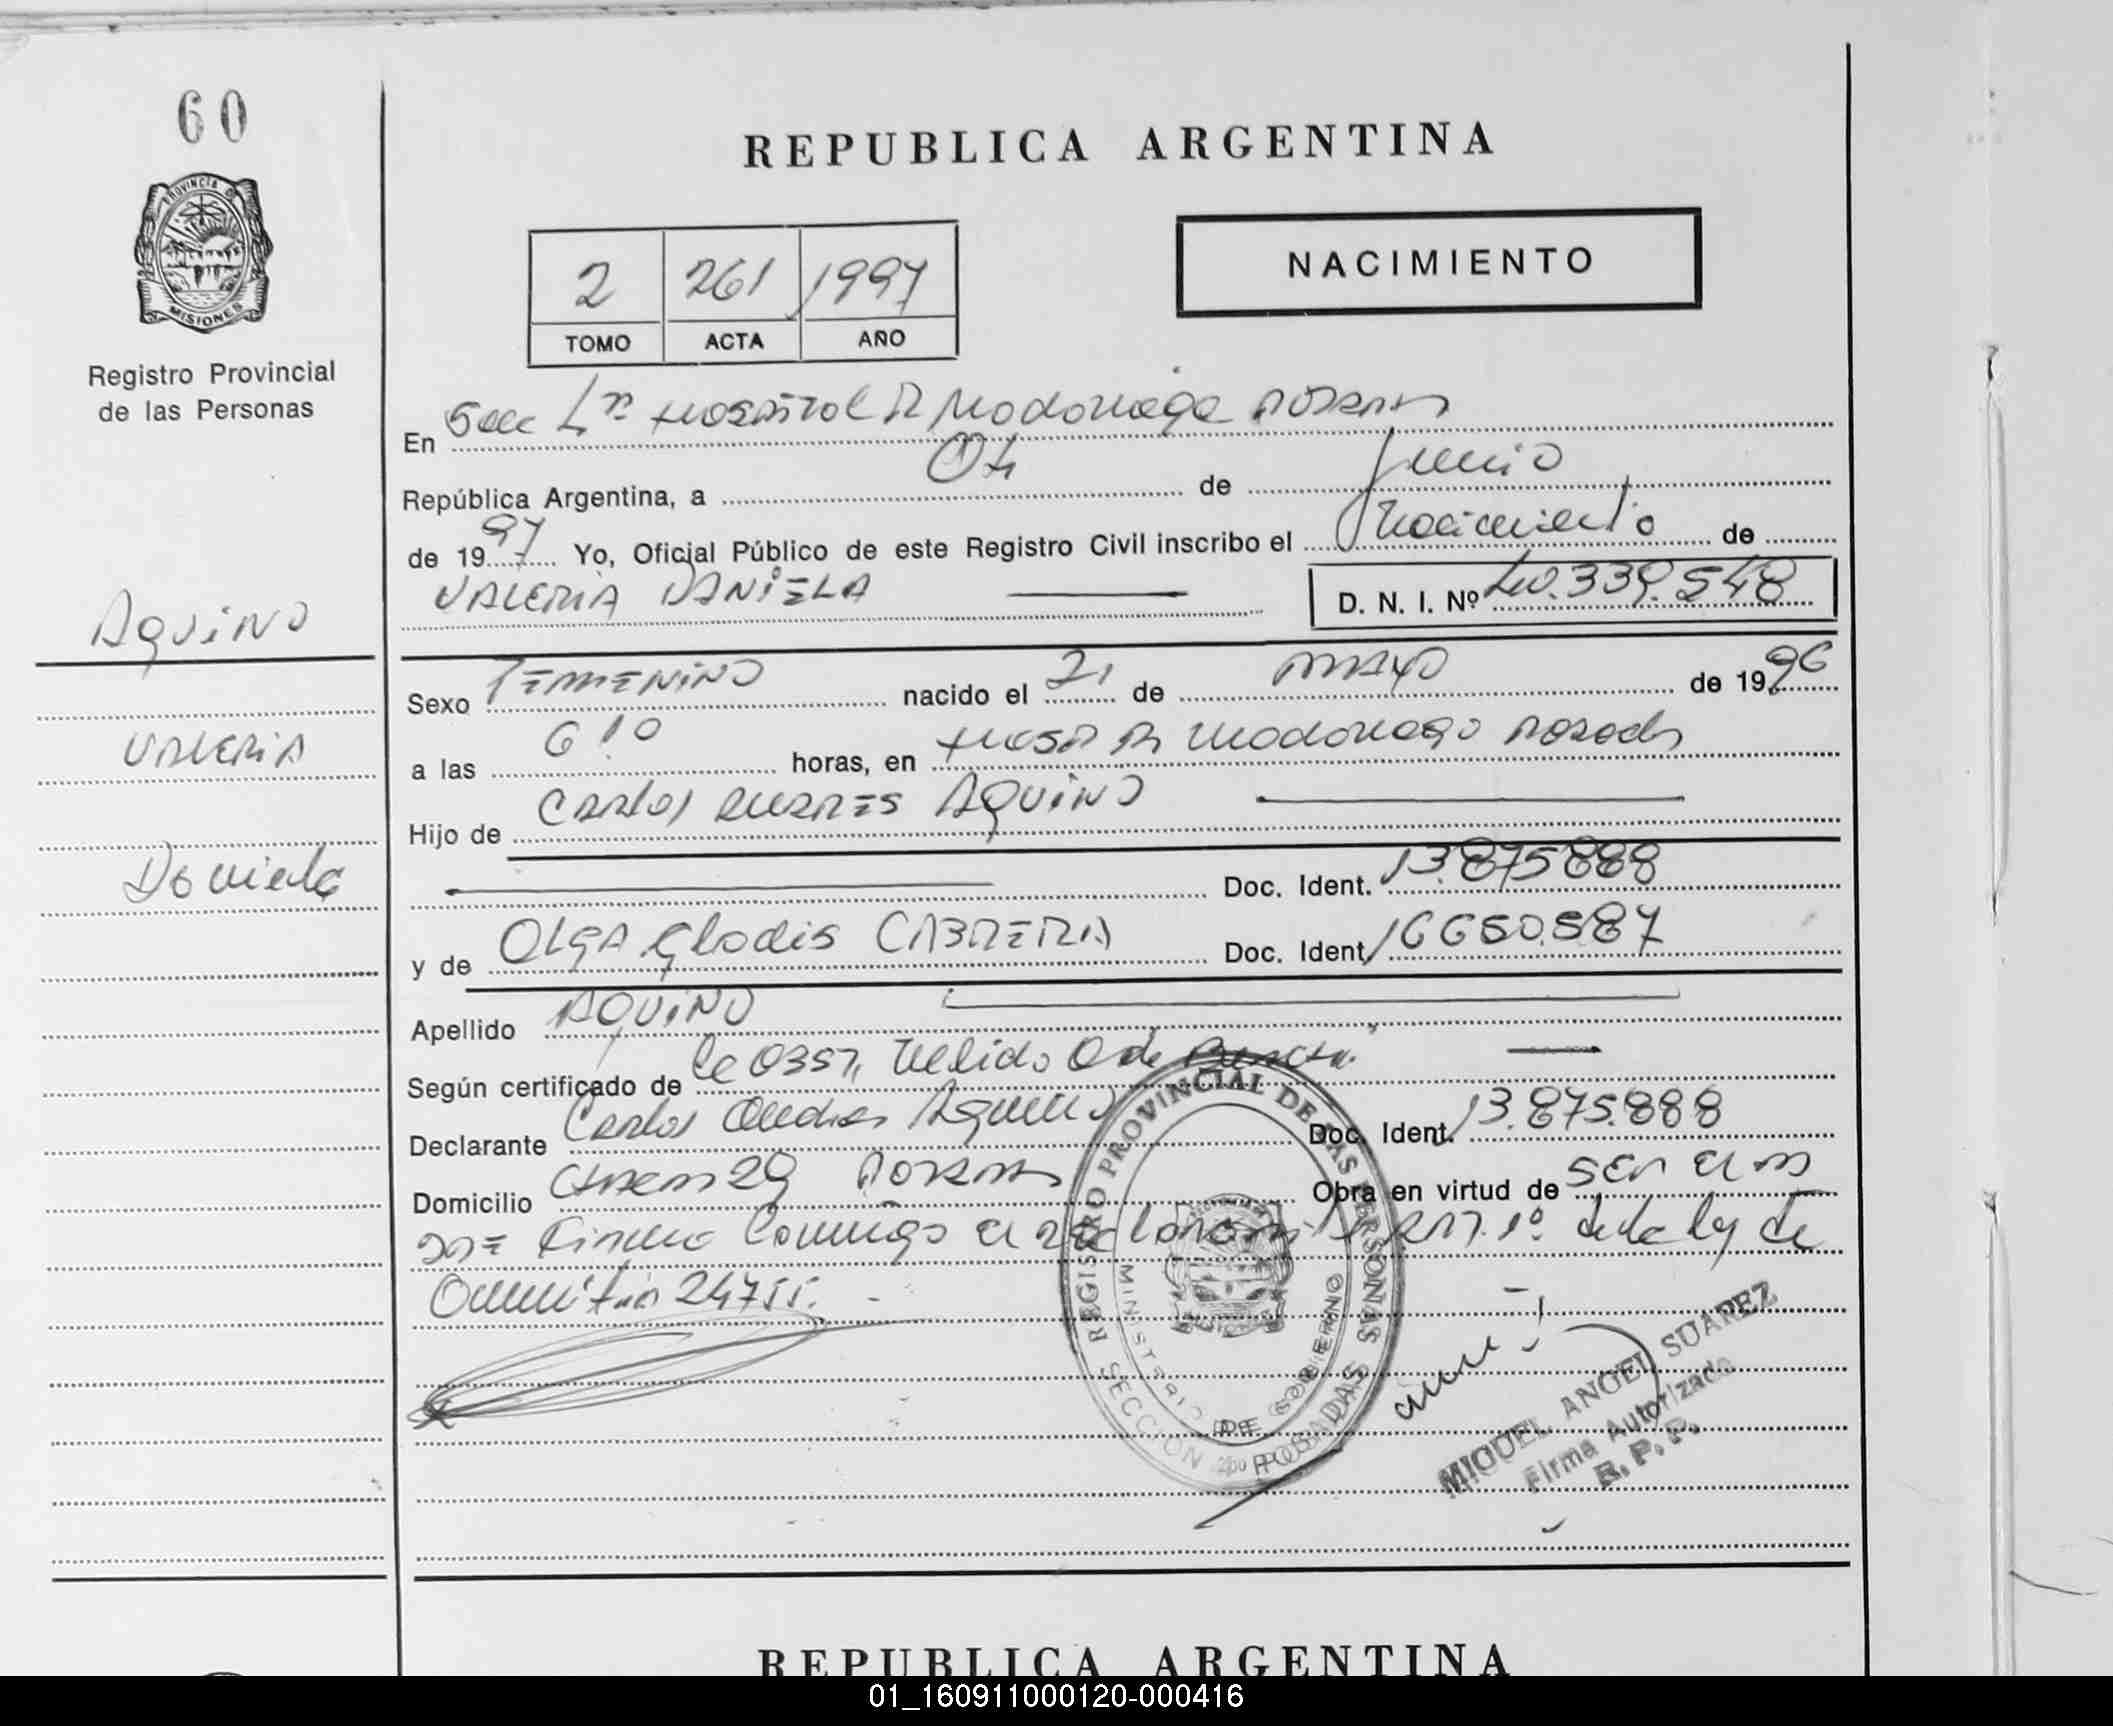 60
REPUBLICA ARGENTINA
PROVINCIA DE
MISIONES
Registro Provincial
de las Personas
2 261 1997
TOMO ACTA AÑO
NACIMIENTO
En Hospital Madariaga Posadas
República Argentina, a 04 de Junio
de 1997 Yo, Oficial Público de este Registro Civil inscribo el Nacimiento de
VALERIA DANIELA D. N. I. Nº 40.339.548
Aquino
Sexo FEMENINO nacido el 21 de MAYO de 1996
VALERIA
a las 6 10 horas, en Hosp Madariaga Posadas
Hijo de Carlos ANDRES AQUINO
Daniela
Doc. Ident. 13.875888
y de OLGA Gladis CABRERA Doc. Ident. 16650.587
Apellido AQUINO
Según certificado de
Declarante Carlos Andres Aquino Doc. Ident. 13.875.888
Domicilio 29 Posadas Obra en virtud de ser el
PADRE Firma Conmigo el art. 1º de la ley de
Amnistia 24755.
REGISTRO PROVINCIAL DE LAS PERSONAS
MINISTERIO DE GOBIERNO
SECCION 2do POSADAS
MIGUEL ANGEL SUAREZ
Firma Autorizada
R. P. P.
REPUBLICA ARGENTINA
01_160911000120-000416